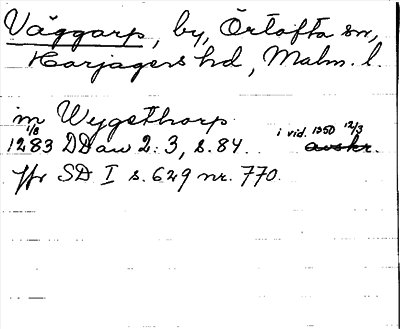 Väggarp, by, Örtofta sn,
Harjagers hd, Malm. l.
in Wygetthorp
1283 1/8 DDaw 2:3, s. 84. i vid. 1350 12/3 avskr.
Jfr SD I s. 629 nr. 770.